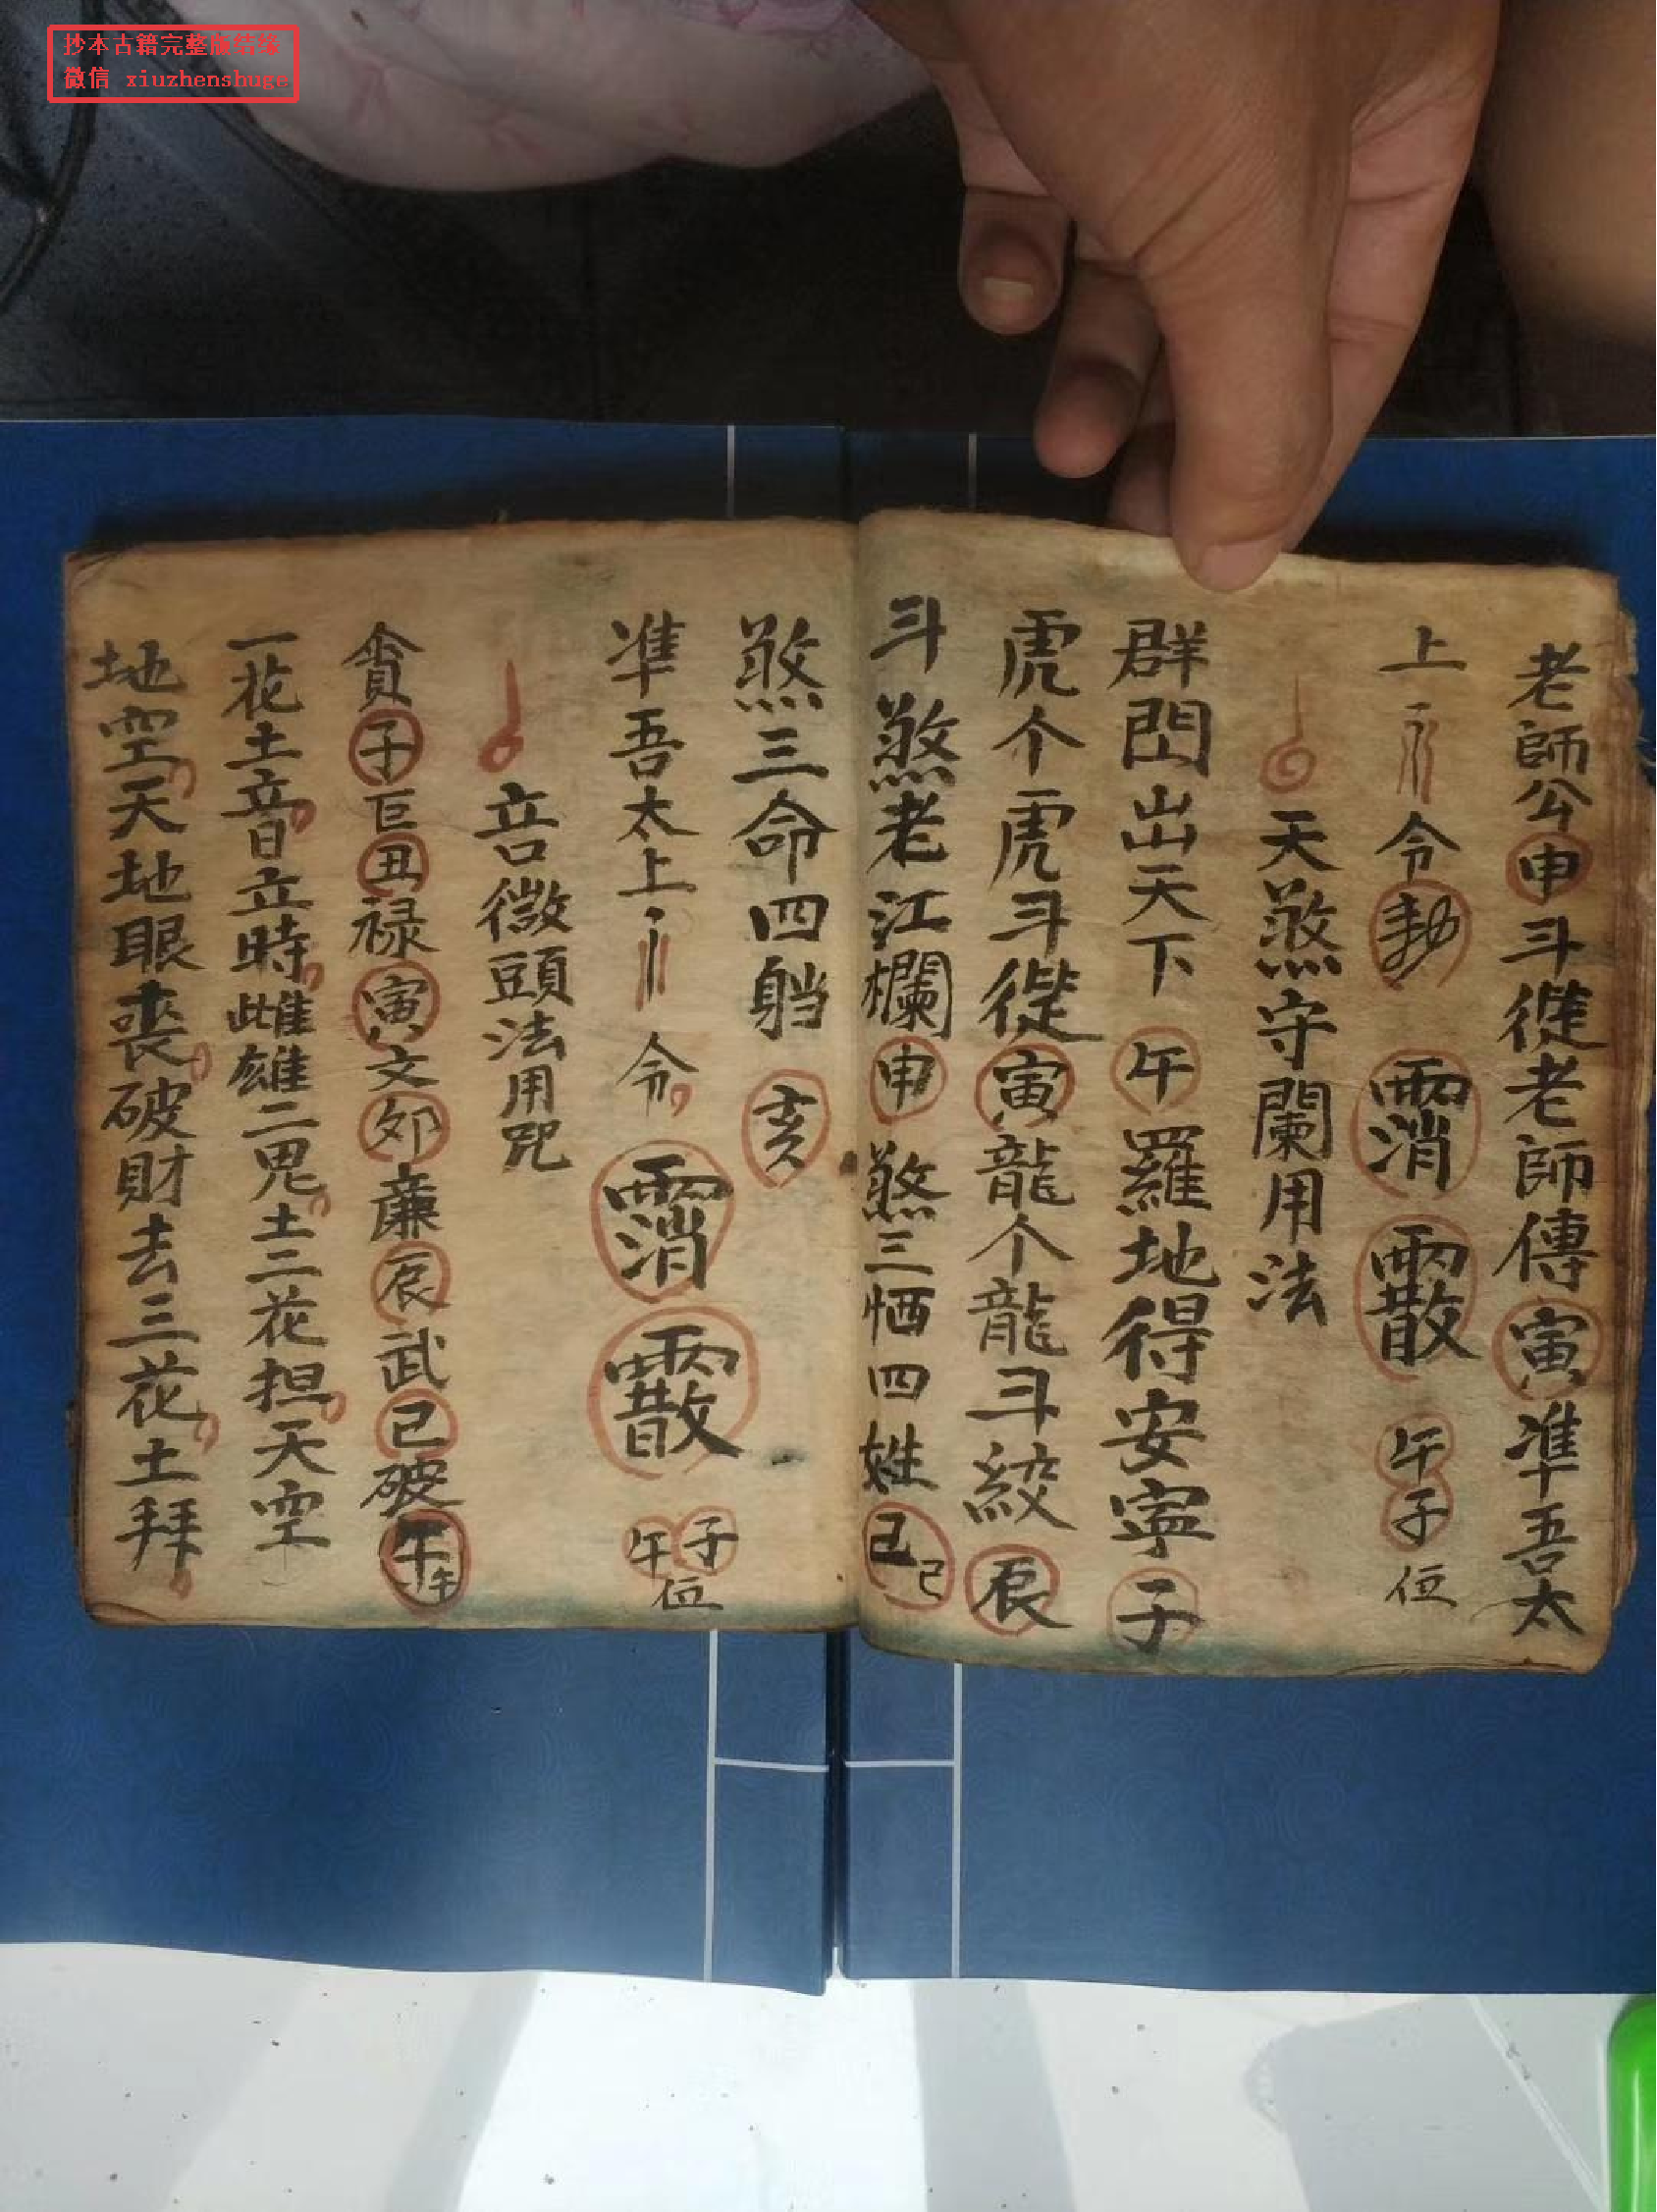 抄本古籍完整版结缘
微信 xiuzhenshuge
老師公申斗從老師傳寅準吾太
上令勅霄散午子位
天煞守闌用法
群出天下午羅地得安寧子
虎个虎斗從寅龍个龍斗絞辰
斗煞老江欄申煞三恓四姓己己
煞三命四亥
凖吾太上令子午位
音微頭法用咒
貪子巨丑禄寅文卯廉辰武己破午午
一花土音立時雌雄二鬼土二花担天空
地空天地眼喪破財去三花土拜